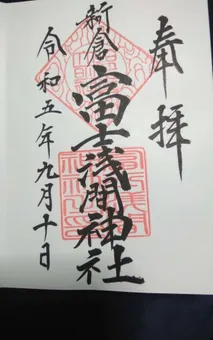 奉拝
新倉
富士浅間神社
令和五年九月十日